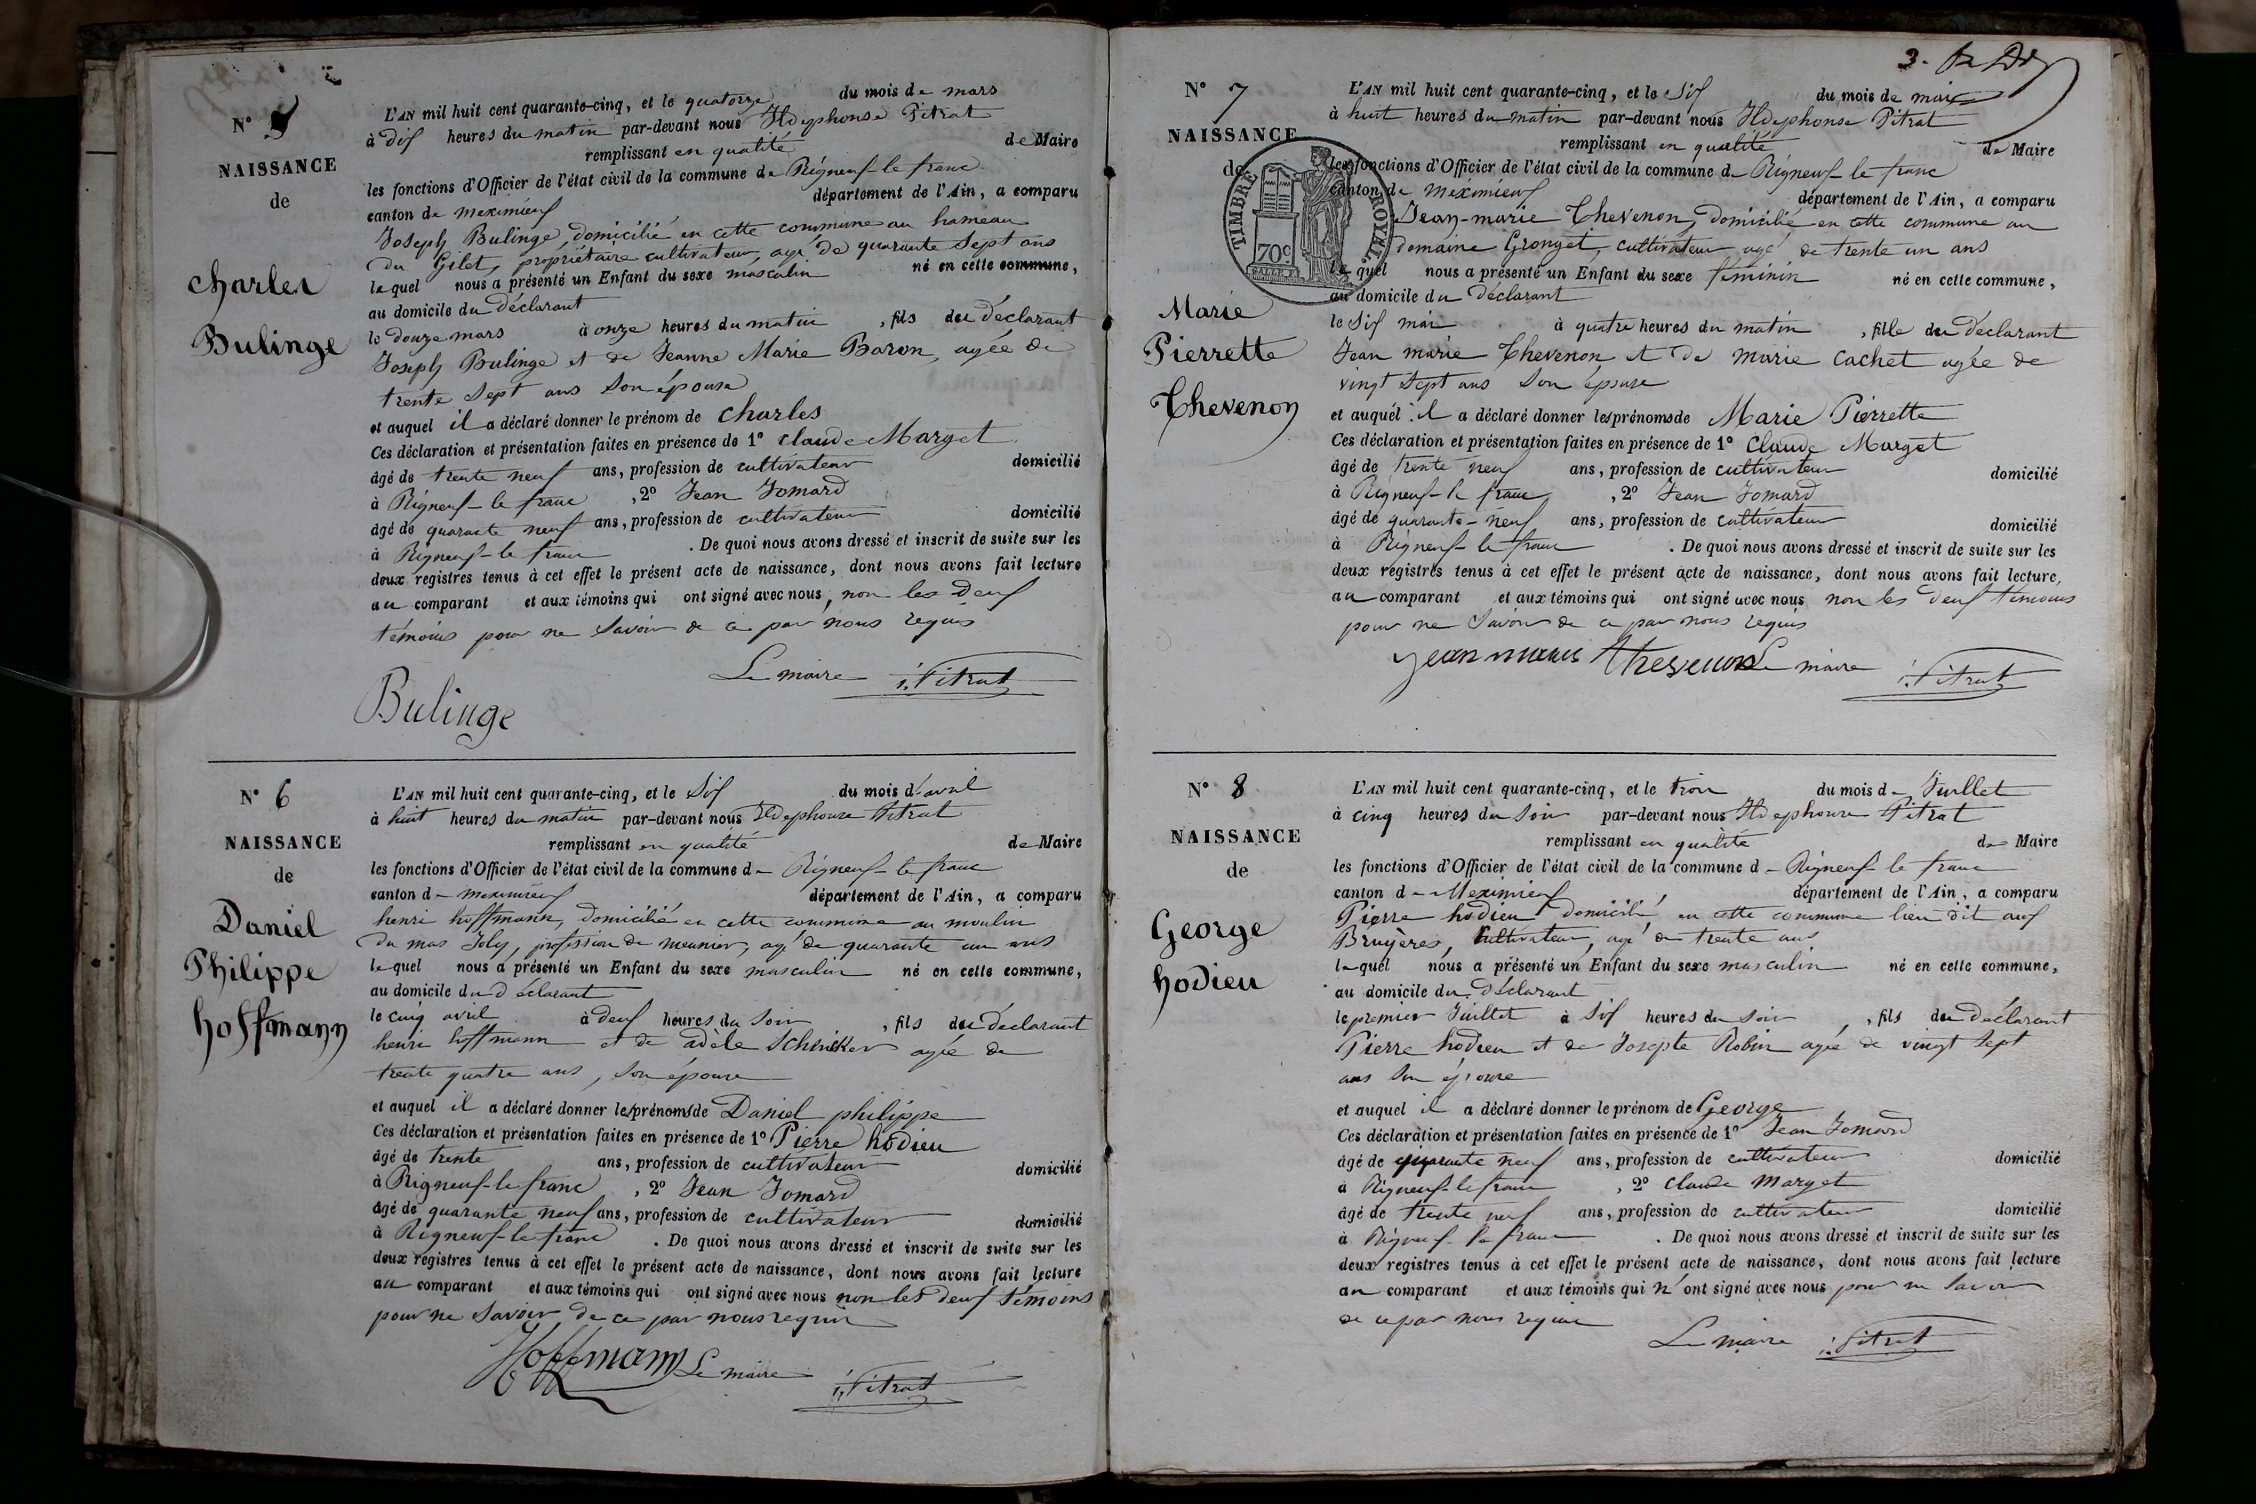 N° 5
NAISSANCE
de
Charles
Bulinge
L'AN mil huit cent quarante-cinq, et le quatorze du mois de mars
à dix heures du matin par-devant nous Ildephonse Pitrat
remplissant en qualité de Maire
les fonctions d'Officier de l'état civil de la commune de Rigneux-le franc
canton de meximieux département de l'Ain, a comparu
Joseph Bulinge, domicilié en cette commune au hameau
du Gilet, propriétaire cultivateur, agé de quarante sept ans
lequel nous a présenté un Enfant du sexe masculin né en cette commune,
au domicile du déclarant
le douze mars à onze heures du matin, fils du déclarant
Joseph Bulinge et de Jeanne Marie Baron, agée de
trente sept ans son épouse
et auquel il a déclaré donner le prénom de charles
Ces déclaration et présentation faites en présence de 1° claude Marget
âgé de trente neuf ans, profession de cultivateur domicilié
à Rigneux-le franc, 2° Jean Jomard
âgé de quarante neuf ans, profession de cultivateur domicilié
à Rigneux-le franc. De quoi nous avons dressé et inscrit de suite sur les
deux registres tenus à cet effet le présent acte de naissance, dont nous avons fait lecture
au comparant et aux témoins qui ont signé avec nous, non les deux
témoins pour ne savoir de ce par nous requis
Le maire i. Pitrat
Bulinge
N° 6
NAISSANCE
de
Daniel
Philippe
hoffmann
L'AN mil huit cent quarante-cinq, et le Six du mois d'avril
à huit heures du matin par-devant nous Ildephonse Pitrat
remplissant en qualité de Maire
les fonctions d'Officier de l'état civil de la commune de Rigneux-le franc
canton de meximieux département de l'Ain, a comparu
henri hoffmann, domicilié en cette commune au moulin
du mas Joly, profession de meunier, agé de quarante un ans
lequel nous a présenté un Enfant du sexe masculin né en cette commune,
au domicile du déclarant
le cinq avril à deux heures du soir, fils du déclarant
henri hoffmann et de adèle schenker agée de
trente quatre ans, son épouse
et auquel il a déclaré donner les prénoms de Daniel philippe
Ces déclaration et présentation faites en présence de 1° Pierre hodieu
âgé de trente ans, profession de cultivateur domicilié
à Rigneux-le franc, 2° Jean Jomard
âgé de quarante neuf ans, profession de cultivateur domicilié
à Rigneux-le franc. De quoi nous avons dressé et inscrit de suite sur les
deux registres tenus à cet effet le présent acte de naissance, dont nous avons fait lecture
au comparant et aux témoins qui ont signé avec nous non les deux témoins
pour ne savoir de ce par nous requis
Hoffmann Le maire i. Pitrat
3.
N° 7
NAISSANCE
de
TIMBRE ROYAL
70c
Marie
Pierrette
Thevenon
L'AN mil huit cent quarante-cinq, et le Six du mois de mai
à huit heures du matin par-devant nous Ildephonse Pitrat
remplissant en qualité de Maire
les fonctions d'Officier de l'état civil de la commune de Rigneux-le franc
canton de meximieux département de l'Ain, a comparu
Jean-marie Thevenon, domicilié en cette commune au
domaine Gronget, cultivateur agé de trente un ans
lequel nous a présenté un Enfant du sexe féminin né en cette commune,
au domicile du déclarant
le Six mai à quatre heures du matin, fille du déclarant
Jean marie Thevenon et de marie cachet agée de
vingt sept ans son épouse
et auquel il a déclaré donner les prénoms de Marie Pierrette
Ces déclaration et présentation faites en présence de 1° Claude Marget
âgé de trente neuf ans, profession de cultivateur domicilié
à Rigneux-le franc, 2° Jean Jomard
âgé de quarante-neuf ans, profession de cultivateur domicilié
à Rigneux-le franc. De quoi nous avons dressé et inscrit de suite sur les
deux registres tenus à cet effet le présent acte de naissance, dont nous avons fait lecture,
au comparant et aux témoins qui ont signé avec nous non les deux témoins
pour ne savoir de ce par nous requis
jean marie thevenon Le maire i. Pitrat
N° 8
NAISSANCE
de
George
hodieu
L'AN mil huit cent quarante-cinq, et le trois du mois de Juillet
à cinq heures du soir par-devant nous Ildephonse Pitrat
remplissant en qualité de Maire
les fonctions d'Officier de l'état civil de la commune de Rigneux-le franc
canton de Meximieux, département de l'Ain, a comparu
Pierre hodieu domicilié, en cette commune lieu dit aux
Bruyères, cultivateur, agé de trente ans
lequel nous a présenté un Enfant du sexe masculin né en cette commune,
au domicile du déclarant
le premier Juillet à six heures du soir, fils du déclarant
Pierre hodieu et de Josepte Robin agée de vingt sept
ans son épouse
et auquel il a déclaré donner le prénom de George
Ces déclaration et présentation faites en présence de 1° Jean Jomard
âgé de quarante neuf ans, profession de cultivateur domicilié
à Rigneux-le franc, 2° claude marget
âgé de trente neuf ans, profession de cultivateur domicilié
à Rigneux-le franc. De quoi nous avons dressé et inscrit de suite sur les
deux registres tenus à cet effet le présent acte de naissance, dont nous avons fait lecture
au comparant et aux témoins qui n'ont signé avec nous pour ne savoir
de ce par nous requis
Le maire i. Pitrat